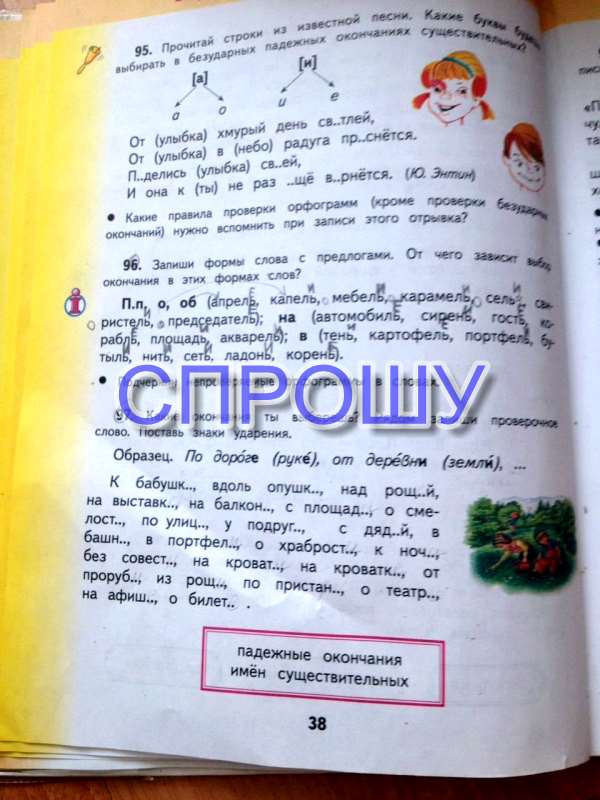 95. Прочитай строки из известной песни. Какие буквы будешь
выбирать в безударных падежных окончаниях существительных?
[а] [и]
а о и е
От (улыбка) хмурый день св..тлей,
От (улыбка) в (небо) радуга пр..снётся.
П..делись (улыбка) св..ей,
И она к (ты) не раз ..щё в..рнётся. (Ю. Энтин)
• Какие правила проверки орфограмм (кроме проверки безударных
окончаний) нужно вспомнить при записи этого отрывка?
96. Запиши формы слова с предлогами. От чего зависит выбор
окончания в этих формах слов?
П.п. о, об (апрель, капель, мебель, карамель, сель, сви-
ристель, председатель); на (автомобиль, сирень, гость, ко-
рабль, площадь, акварель); в (тень, картофель, портфель, бу-
тыль, нить, сеть, ладонь, корень).
• Подчеркни непроверяемые орфограммы в словах.
СПРОШУ
97. Какие окончания ты выберешь? Рядом запиши проверочное
слово. Поставь знаки ударения.
Образец. По доро́ге (руке́), от дере́вни (земли́), ...
К бабушк.., вдоль опушк.., над рощ..й,
на выставк.., на балкон.., с площад.., о сме-
лост.., по улиц.., у подруг.., с дяд..й, в
башн.., в портфел.., о храброст.., к ноч..,
без совест.., на кроват.., на кроватк.., от
проруб.., из рощ.., по пристан.., о театр..,
на афиш.., о билет.. .
падежные окончания
имён существительных
38